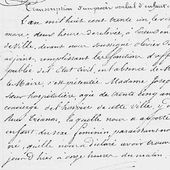 Transcription du procès verbal d'enfant
L'an mil huit cent trente un, le
mars deux heures de relevée, à l'hôtel
de Ville, devant nous soussigné
adjoint, remplissant les fonctions d'off
public de l'état civil, en absence de M
le Maire, s'est présentée Madame Josep
hospitalière, agée de trente cinq ans
concierge de l'hospice de cette ville, y
laquelle nous a apporté
enfant du sexe féminin, paraissant
né, qu'elle nous a déclaré avoir trouvé
jourd'hui à onze heures du matin